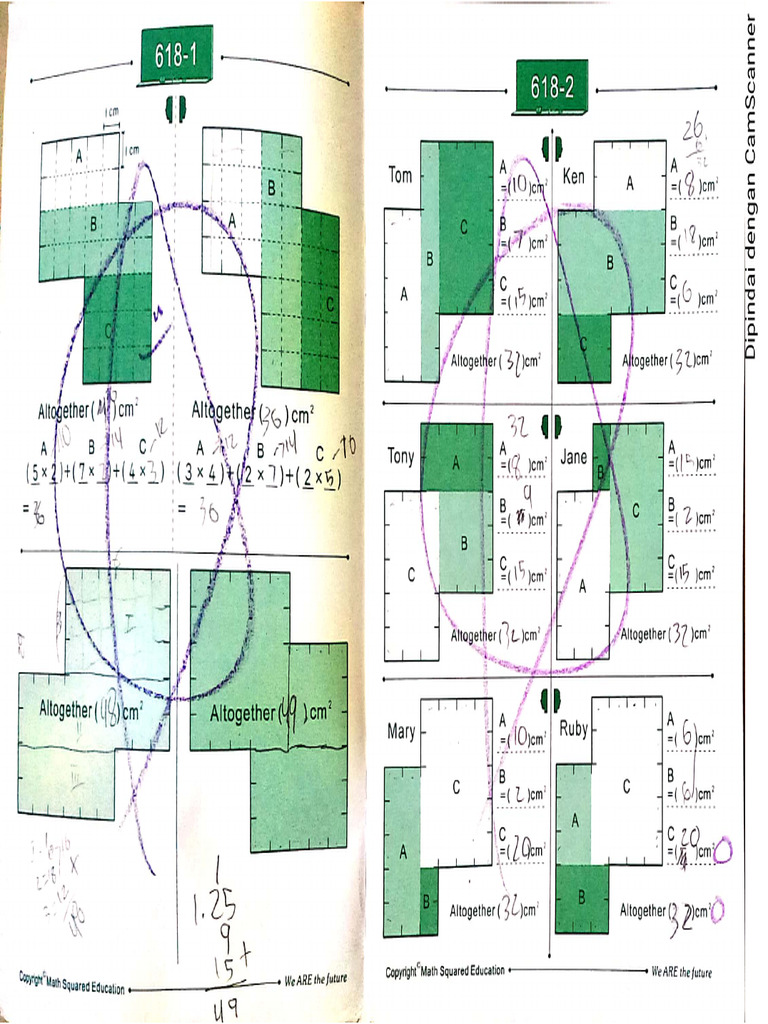 618-1
1 cm
1 cm
A
B
C
A
B
C
Altogether ( ) cm²
Altogether (36) cm²
A 10 B 14 C 12
A 12 B 14 C 10
(5 × 2)+(7 × 2)+(4 × 3)
(3 × 4)+(2 × 7)+(2 × 5)
= 36
= 36
Altogether (48) cm²
Altogether (49) cm²
1
1. 25
9
15 +
49
Copyright©Math Squared Education
We ARE the future
618-2
Tom
A
B
C
A =(10)cm²
B =(7)cm²
C =(15)cm²
Altogether (32)cm²
Ken
26
A
B
C
A =(8)cm²
B =(18)cm²
C =(6)cm²
Altogether (32)cm²
Tony
32
A
B
C
A =(8)cm²
B =(9)cm²
C =(15)cm²
Altogether (32)cm²
Jane
B
C
A
A =(15)cm²
B =(2)cm²
C =(15)cm²
Altogether (32)cm²
Mary
C
A
B
A =(10)cm²
B =(2)cm²
C =(20)cm²
Altogether (32)cm²
Ruby
C
A
B
A =(6)cm²
B =(6)cm²
C =(20)cm²
Altogether (32)cm²
Copyright©Math Squared Education
We ARE the future
Dipindai dengan CamScanner